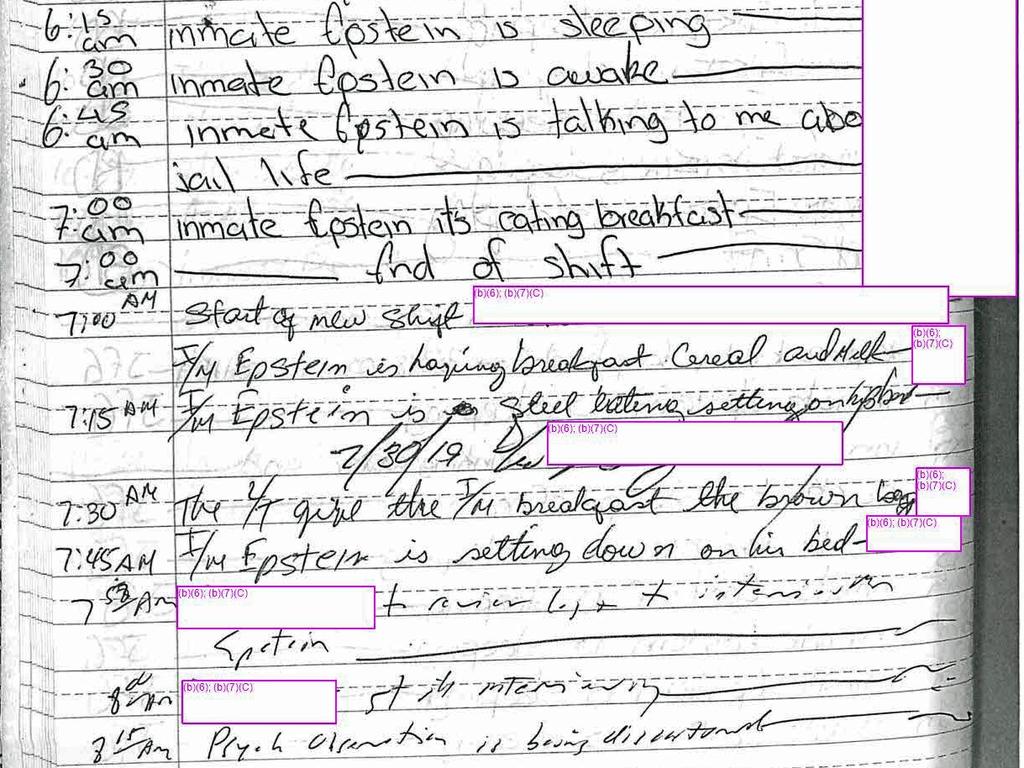 6:15 am inmate Epstein is sleeping
6:30 am inmate Epstein is awake
6:45 am inmate Epstein is talking to me abo
jail life
7:00 am inmate Epstein it's eating breakfast
7:00 am End of shift
7:00 AM Start of new shift (b)(6); (b)(7)(C)
I/M Epstein is having breakfast Cereal and Milk (b)(6); (b)(7)(C)
7:15 AM I/M Epstein is steel eating setting on his bed
7/30/19 (b)(6); (b)(7)(C)
7:30 AM The L/T give the I/M breakfast the brown bag (b)(6); (b)(7)(C)
7:45 AM I/M Epstein is setting down on his bed (b)(6); (b)(7)(C)
AM (b)(6); (b)(7)(C) review
Epstein
AM (b)(6); (b)(7)(C) interviewing
8 15 AM Psych observation is being